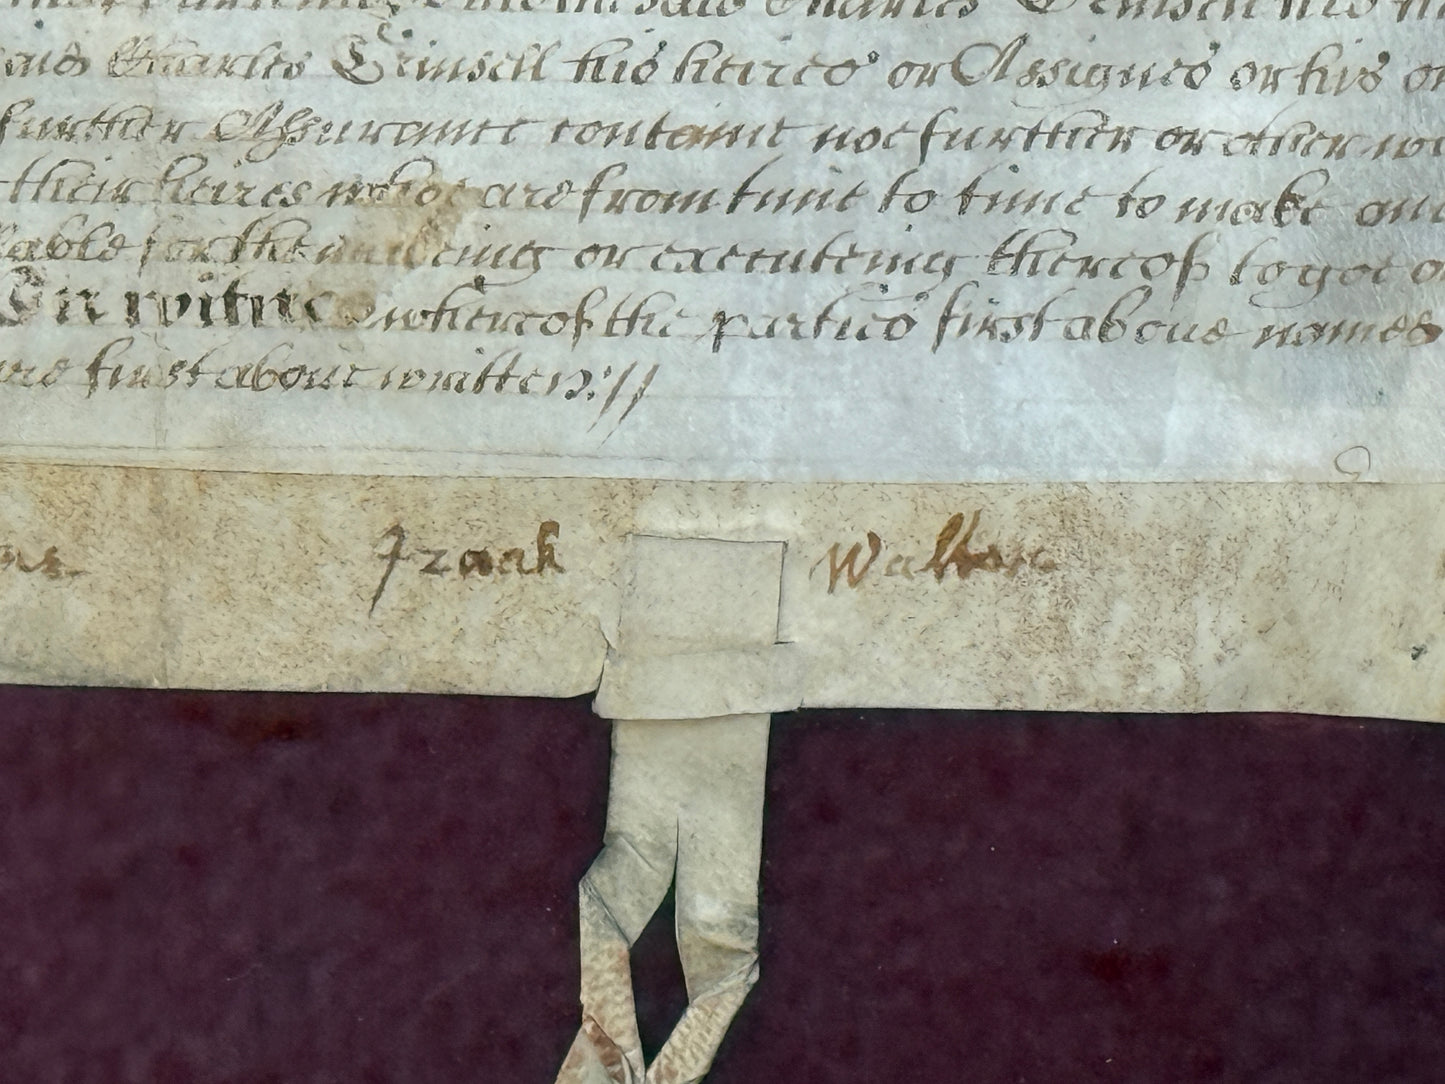 said Charles
and Charles his heires or Assignes or his or
further Assurance containe noe further or other
their heires whoe are from time to time to make
for the makeing or executeing thereof to goe
In witnes whereof the parties first above named
first above written://
Izaak Walton